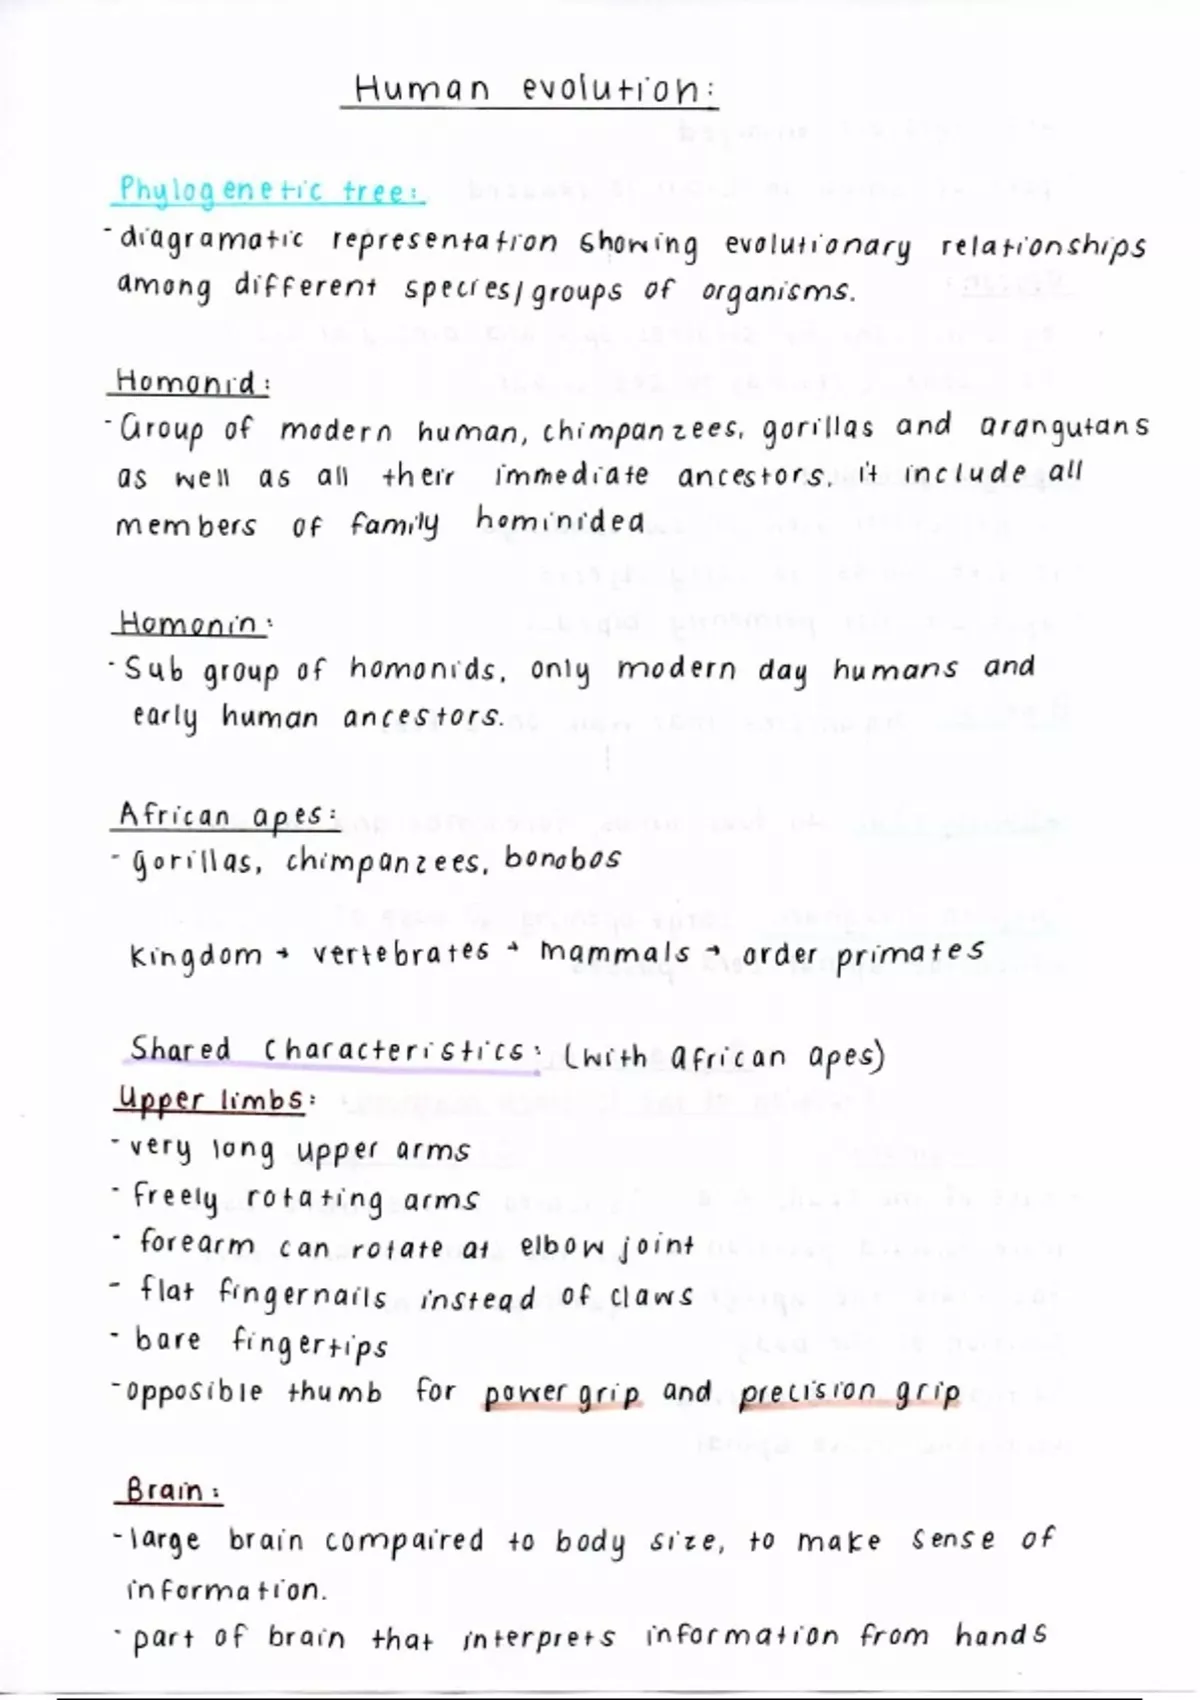 Human evolution:
Phylogenetic tree:
- diagramatic representation showing evolutionary relationships
among different species/groups of organisms.
Homonid:
- Group of modern human, chimpanzees, gorillas and arangutans
as well as all their immediate ancestors. it include all
members of family hominided
Homonin:
- Sub group of homonids, only modern day humans and
early human ancestors.
African apes:
- gorillas, chimpanzees, bonobos
Kingdom → vertebrates → mammals → order primates
Shared Characteristics: (with African apes)
Upper limbs:
- very long upper arms
- freely rotating arms
- forearm can rotate at elbow joint
- flat fingernails instead of claws
- bare fingertips
- opposible thumb for power grip and precision grip
Brain:
- large brain compaired to body size, to make sense of
information.
- part of brain that interprets information from hands